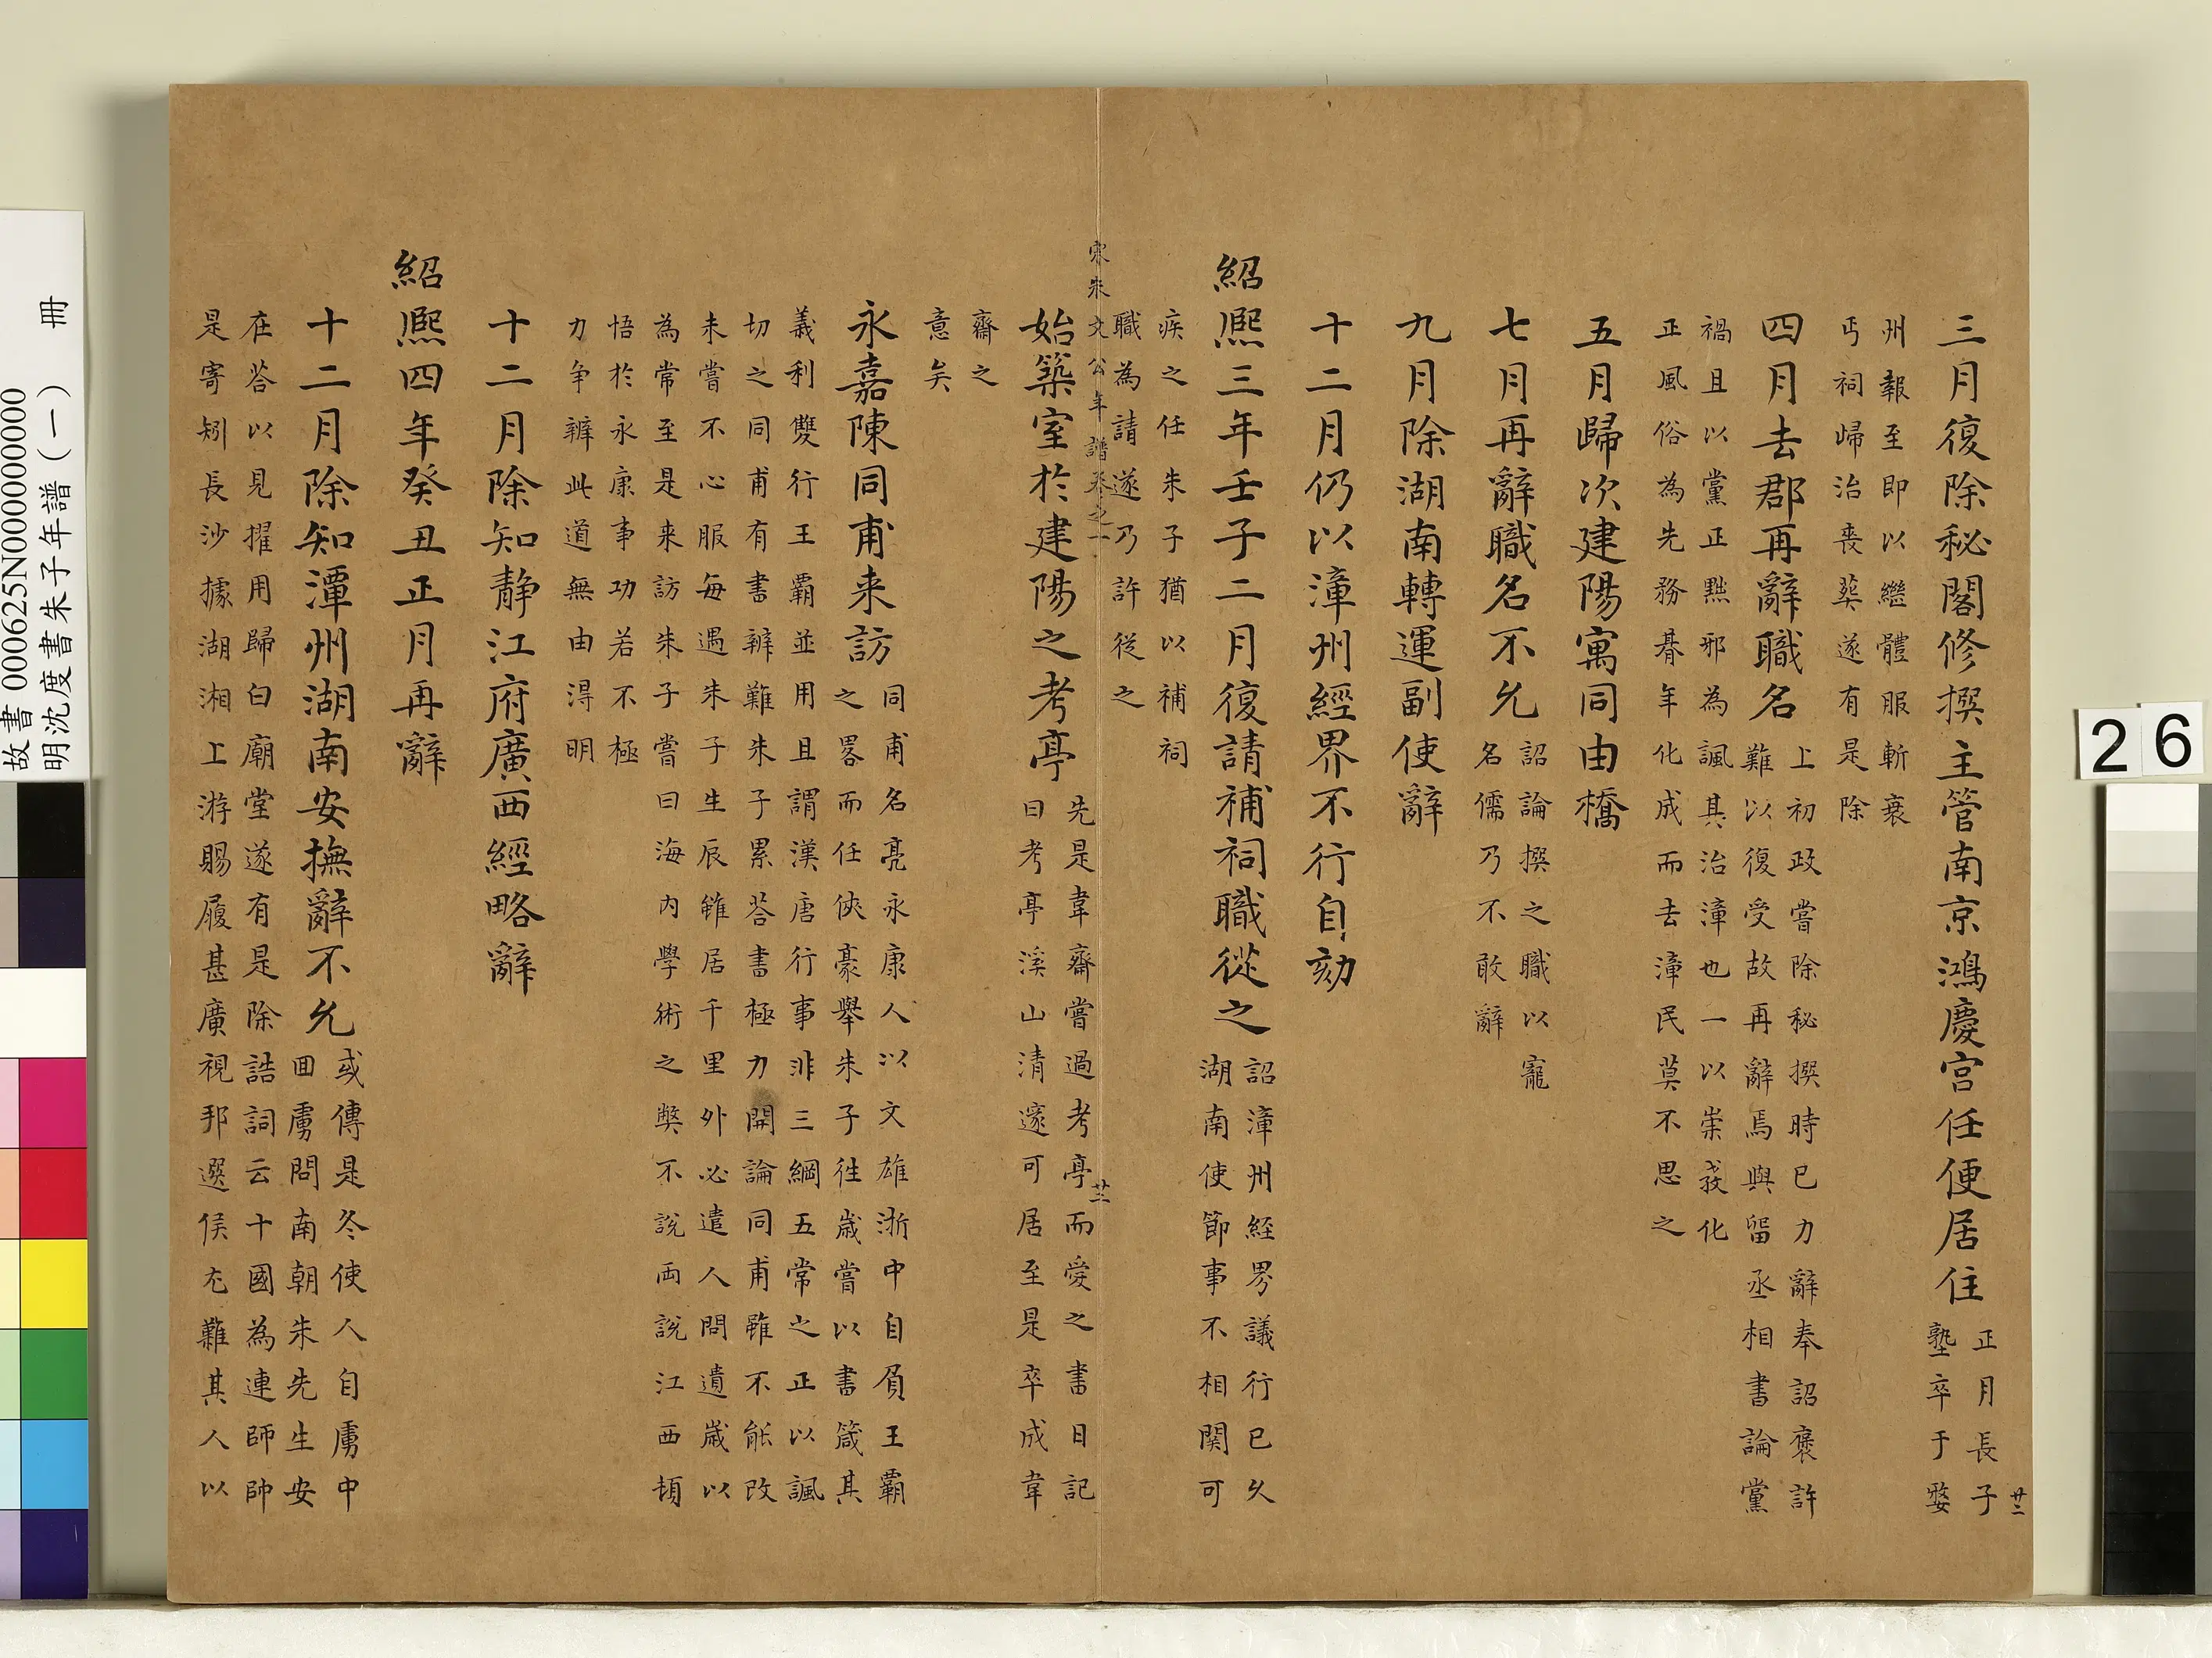 三月復除秘閣修撰主管南京鴻慶宮任便居住
正月長子
塾卒于婺
州報至即以繼體服斬衰
丐祠歸治喪葬遂有是除
四月去郡再辭職名
上初政嘗除秘撰時已力辭奉詔褒許
難以復受故再辭焉與留丞相書論黨
禍且以黨正黜邪為諷其治漳也一以崇教化
正風俗為先務朞年化成而去漳民莫不思之
五月歸次建陽寓同由橋
七月再辭職名不允
詔論撰之職以寵
名儒乃不敢辭
九月除湖南轉運副使辭
十二月仍以漳州經界不行自劾
紹熙三年壬子二月復請補祠職從之
詔漳州經界議行已久
湖南使節事不相関可
疾之任朱子猶以補祠
職為請遂乃許從之
宋朱文公年譜卷之一
始築室於建陽之考亭
先是韋齋嘗過考亭而愛之書日記
曰考亭溪山清邃可居至是卒成韋
齋之
意矣
永嘉陳同甫来訪
同甫名亮永康人以文雄浙中自負王霸
之畧而任俠豪舉朱子徃歲嘗以書箴其
義利雙行王霸並用且謂漢唐行事非三綱五常之正以諷
切之同甫有書辨難朱子累荅書極力開論同甫雖不能改
未嘗不心服每遇朱子生辰雖居千里外必遣人問遺歲以
為常至是来訪朱子嘗曰海內學術之獘不說兩說江西頓
悟於永康事功若不極
力争辨此道無由淂明
十二月除知静江府廣西經略辭
紹熙四年癸丑正月再辭
十二月除知潭州湖南安撫辭不允
或傳是冬使人自虜中
囬虜問南朝朱先生安
在荅以見擢用歸白廟堂遂有是除誥詞云十國為連師帥
是寄矧長沙據湖湘上游賜履甚廣視邦選侯尤難其人以
廿二
廿三
故書 000625N000000000
明沈度書朱子年譜(一) 冊
26